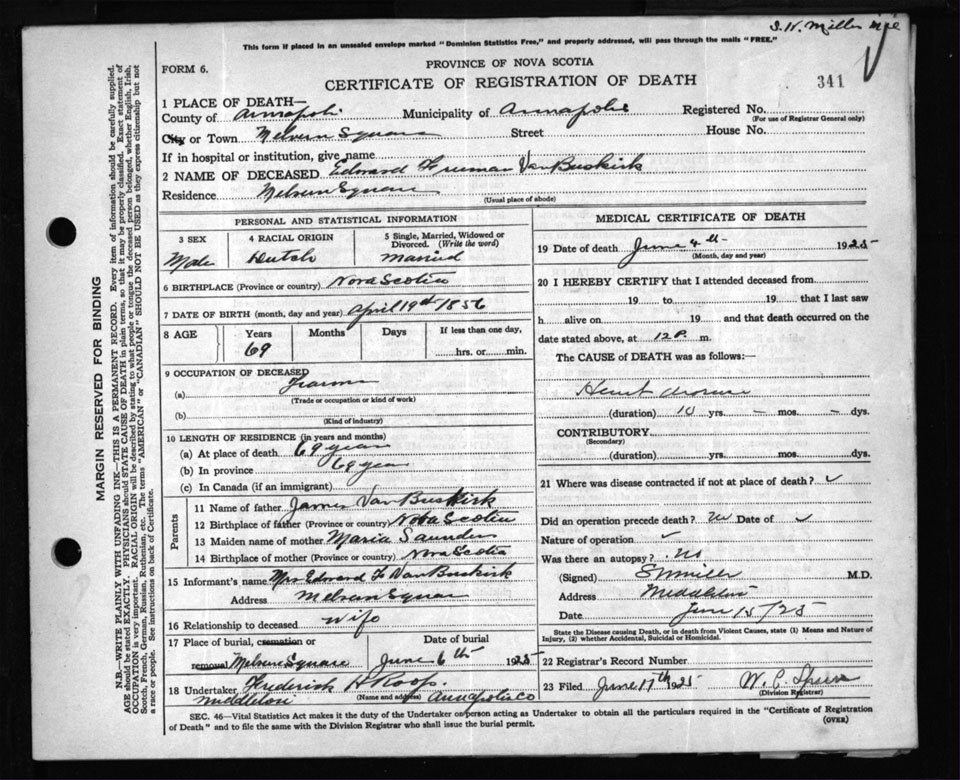 S. N. Miller
This form if placed in an unsealed envelope marked "Dominion Statistics Free," and properly addressed, will pass through the mails "FREE."
FORM 6.
PROVINCE OF NOVA SCOTIA
CERTIFICATE OF REGISTRATION OF DEATH
341
1 PLACE OF DEATH—
County of Annapolis Municipality of Annapolis Registered No.
(For use of Registrar General only)
City or Town Melvern Square Street House No.
If in hospital or institution, give name
2 NAME OF DECEASED Edward Freeman VanBuskirk
Residence Melvern Square
(Usual place of abode)
PERSONAL AND STATISTICAL INFORMATION
3 SEX 4 RACIAL ORIGIN 5 Single, Married, Widowed or Divorced. (Write the word)
Male Dutch Married
6 BIRTHPLACE (Province or country) Nova Scotia
7 DATE OF BIRTH (month, day and year) April 19th 1856
8 AGE Years Months Days If less than one day,
69 hrs. or min.
9 OCCUPATION OF DECEASED
(a) Farmer
(Trade or occupation or kind of work)
(b)
(Kind of industry)
10 LENGTH OF RESIDENCE (in years and months)
(a) At place of death 69 years
(b) In province 69 years
(c) In Canada (if an immigrant)
Parents
11 Name of father James VanBuskirk
12 Birthplace of father (Province or country) Nova Scotia
13 Maiden name of mother Maria Saunders
14 Birthplace of mother (Province or country) Nova Scotia
15 Informant's name Mrs Edward F VanBuskirk
Address Melvern Square
16 Relationship to deceased Wife
17 Place of burial, cremation or removal Date of burial
Melvern Square June 6th 1925
18 Undertaker Frederick H Roop.
(Name and address)
Middleton Annapolis Co
MEDICAL CERTIFICATE OF DEATH
19 Date of death June 4th 1925
(Month, day and year)
20 I HEREBY CERTIFY that I attended deceased from
19 to 19 that I last saw
h alive on 19 and that death occurred on the
date stated above, at 12 P. m.
The CAUSE of DEATH was as follows:—
Heart
(duration) 10 yrs. – mos. – dys.
CONTRIBUTORY
(Secondary)
(duration) yrs. mos. dys.
21 Where was disease contracted if not at place of death? ✓
Did an operation precede death? No Date of ✓
Nature of operation ✓
Was there an autopsy? No
(Signed) S N Miller M.D.
Address Middleton
Date June 15/25
State the Disease causing Death, or in death from Violent Causes, state (1) Means and Nature of
Injury, (2) whether Accidental, Suicidal or Homicidal.
22 Registrar's Record Number
23 Filed June 17th 1925 W. C.
(Division Registrar)
SEC. 46—Vital Statistics Act makes it the duty of the Undertaker or person acting as Undertaker to obtain all the particulars required in the "Certificate of Registration
of Death" and to file the same with the Division Registrar who shall issue the burial permit.
(OVER)
MARGIN RESERVED FOR BINDING
N.B.—WRITE PLAINLY WITH UNFADING INK—THIS IS A PERMANENT RECORD. Every item of information should be carefully supplied.
AGE should be stated EXACTLY. PHYSICIANS should STATE CAUSE OF DEATH in plain terms, so that it may be properly classified. Exact statement of
OCCUPATION is very important. RACIAL ORIGIN will be described by stating to what people or tongue the deceased person belonged, whether English, Irish,
Scotch, French, German, Russian, Ruthenian, etc. The terms "AMERICAN" or "CANADIAN" SHOULD NOT BE USED as they express citizenship but not
a race or people. See instructions on back of Certificate.